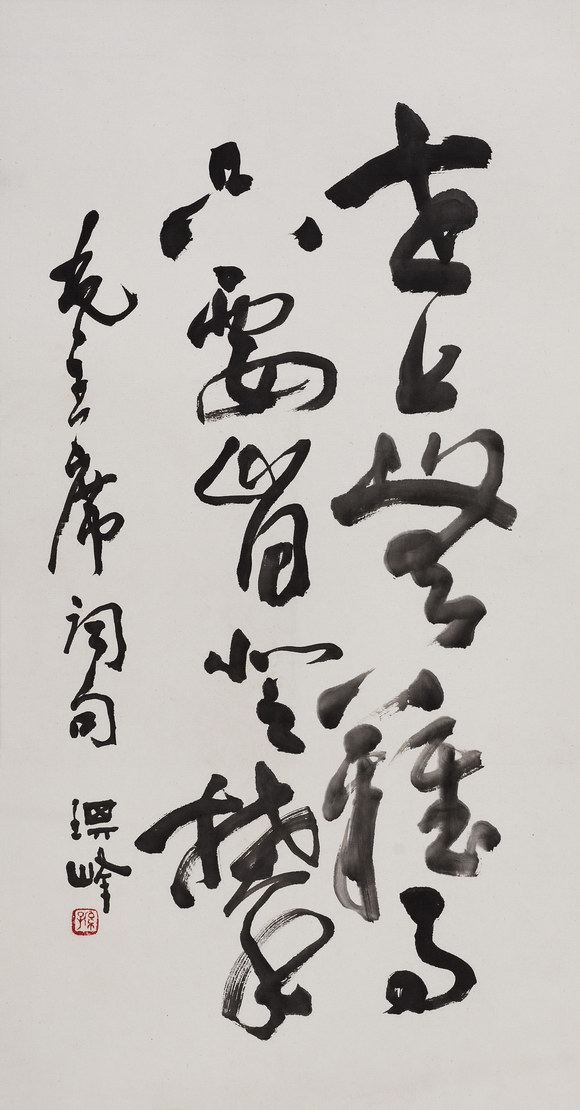 世上無難事
只要肯登攀
毛主席詞句
琪峰
孫